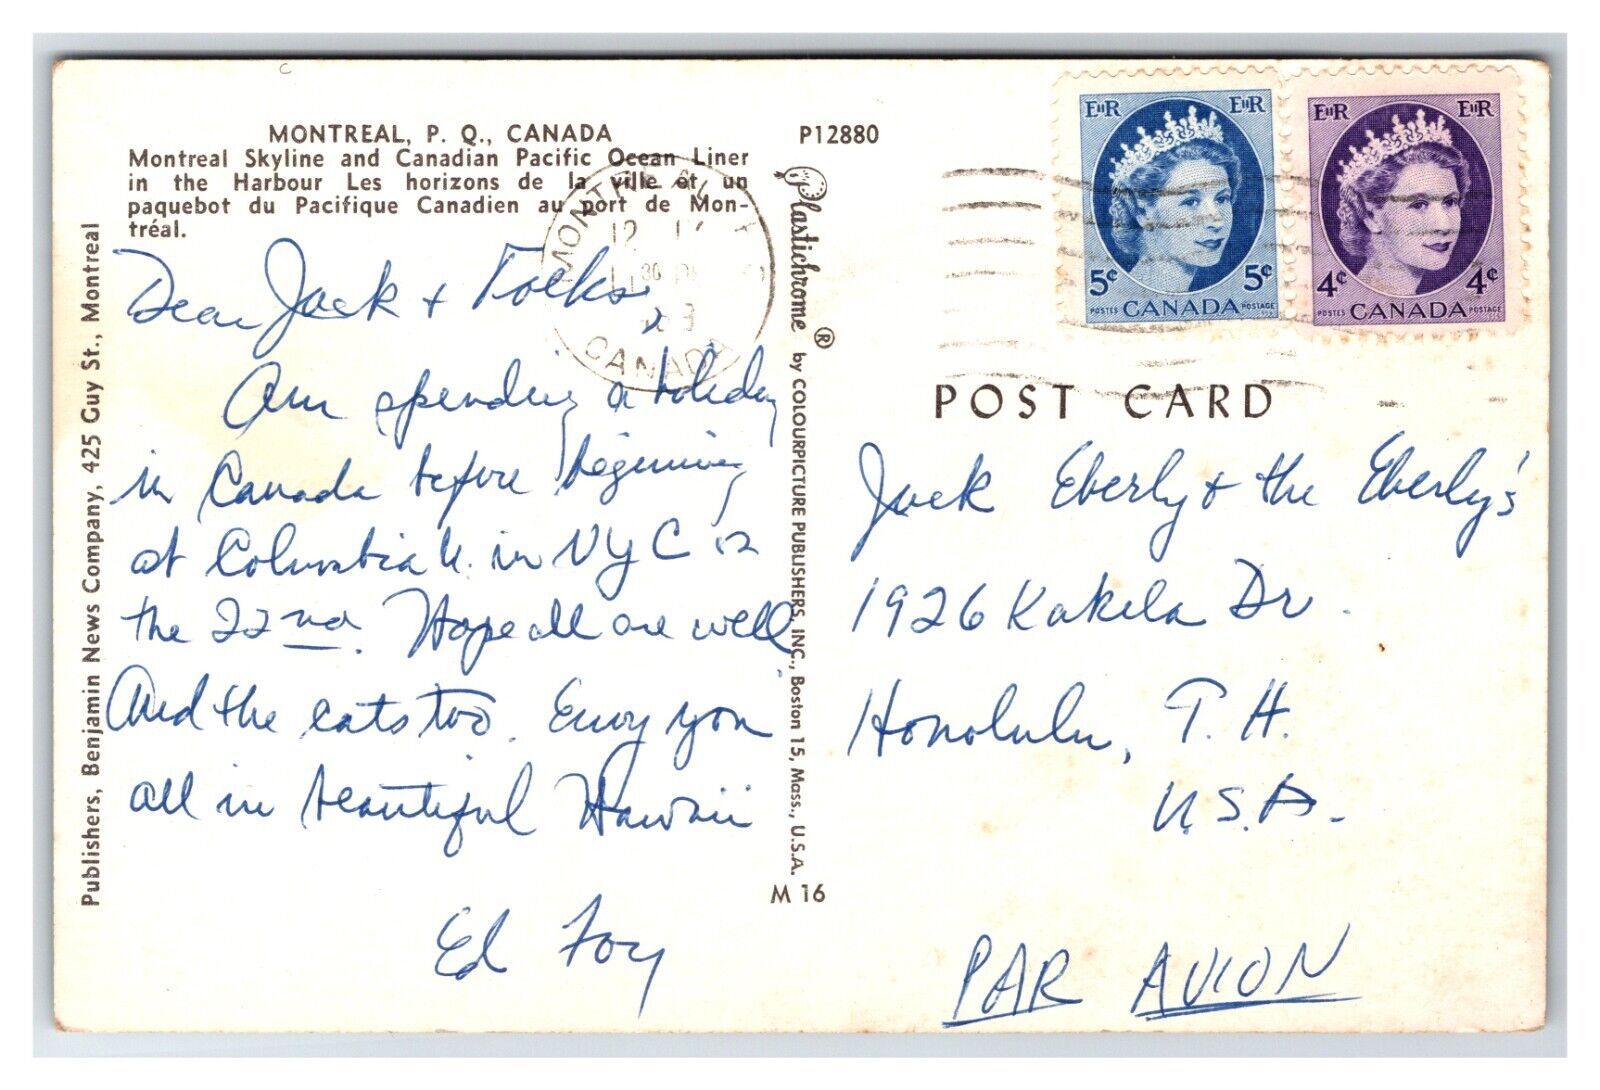 MONTREAL, P. Q., CANADA
Montreal Skyline and Canadian Pacific Ocean Liner
in the Harbour Les horizons de la ville et un
paquebot du Pacifique Canadien au port de Mon-
tréal.
P12880
Dear Jack + Folks,
Am spending a holiday
in Canada before beginning
at Columbia U. in NYC on
the 22nd. Hope all are well
And the cats too. Envy you
all in beautiful Hawaii
Ed Foy
Publishers, Benjamin News Company, 425 Guy St., Montreal
Plastichrome ® by COLOURPICTURE PUBLISHERS, INC., Boston 15, Mass., U.S.A.
M 16
MONTREAL
12
30
CANADA
EIIR EIIR
5¢ 5¢
POSTES CANADA POSTAGE
EIIR EIIR
4¢ 4¢
POSTES CANADA POSTAGE
POST CARD
Jack Eberly + the Eberly's
1926 Kakela Dr.
Honolulu, T. H.
U.S.A.
PAR AVION